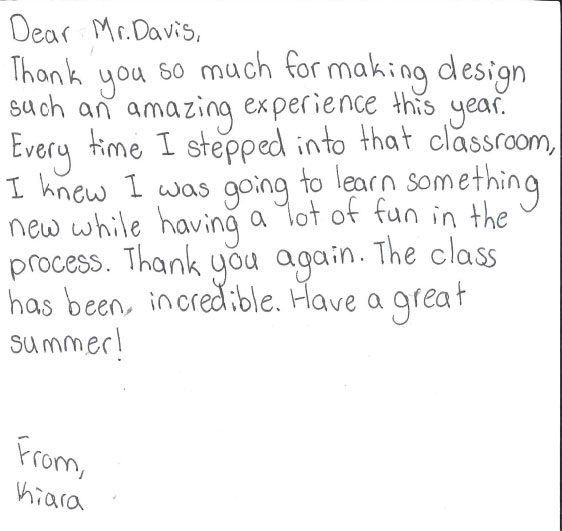 Dear Mr. Davis,
Thank you so much for making design
such an amazing experience this year.
Every time I stepped into that classroom,
I knew I was going to learn something
new while having a lot of fun in the
process. Thank you again. The class
has been, incredible. Have a great
summer!
From,
Kiara